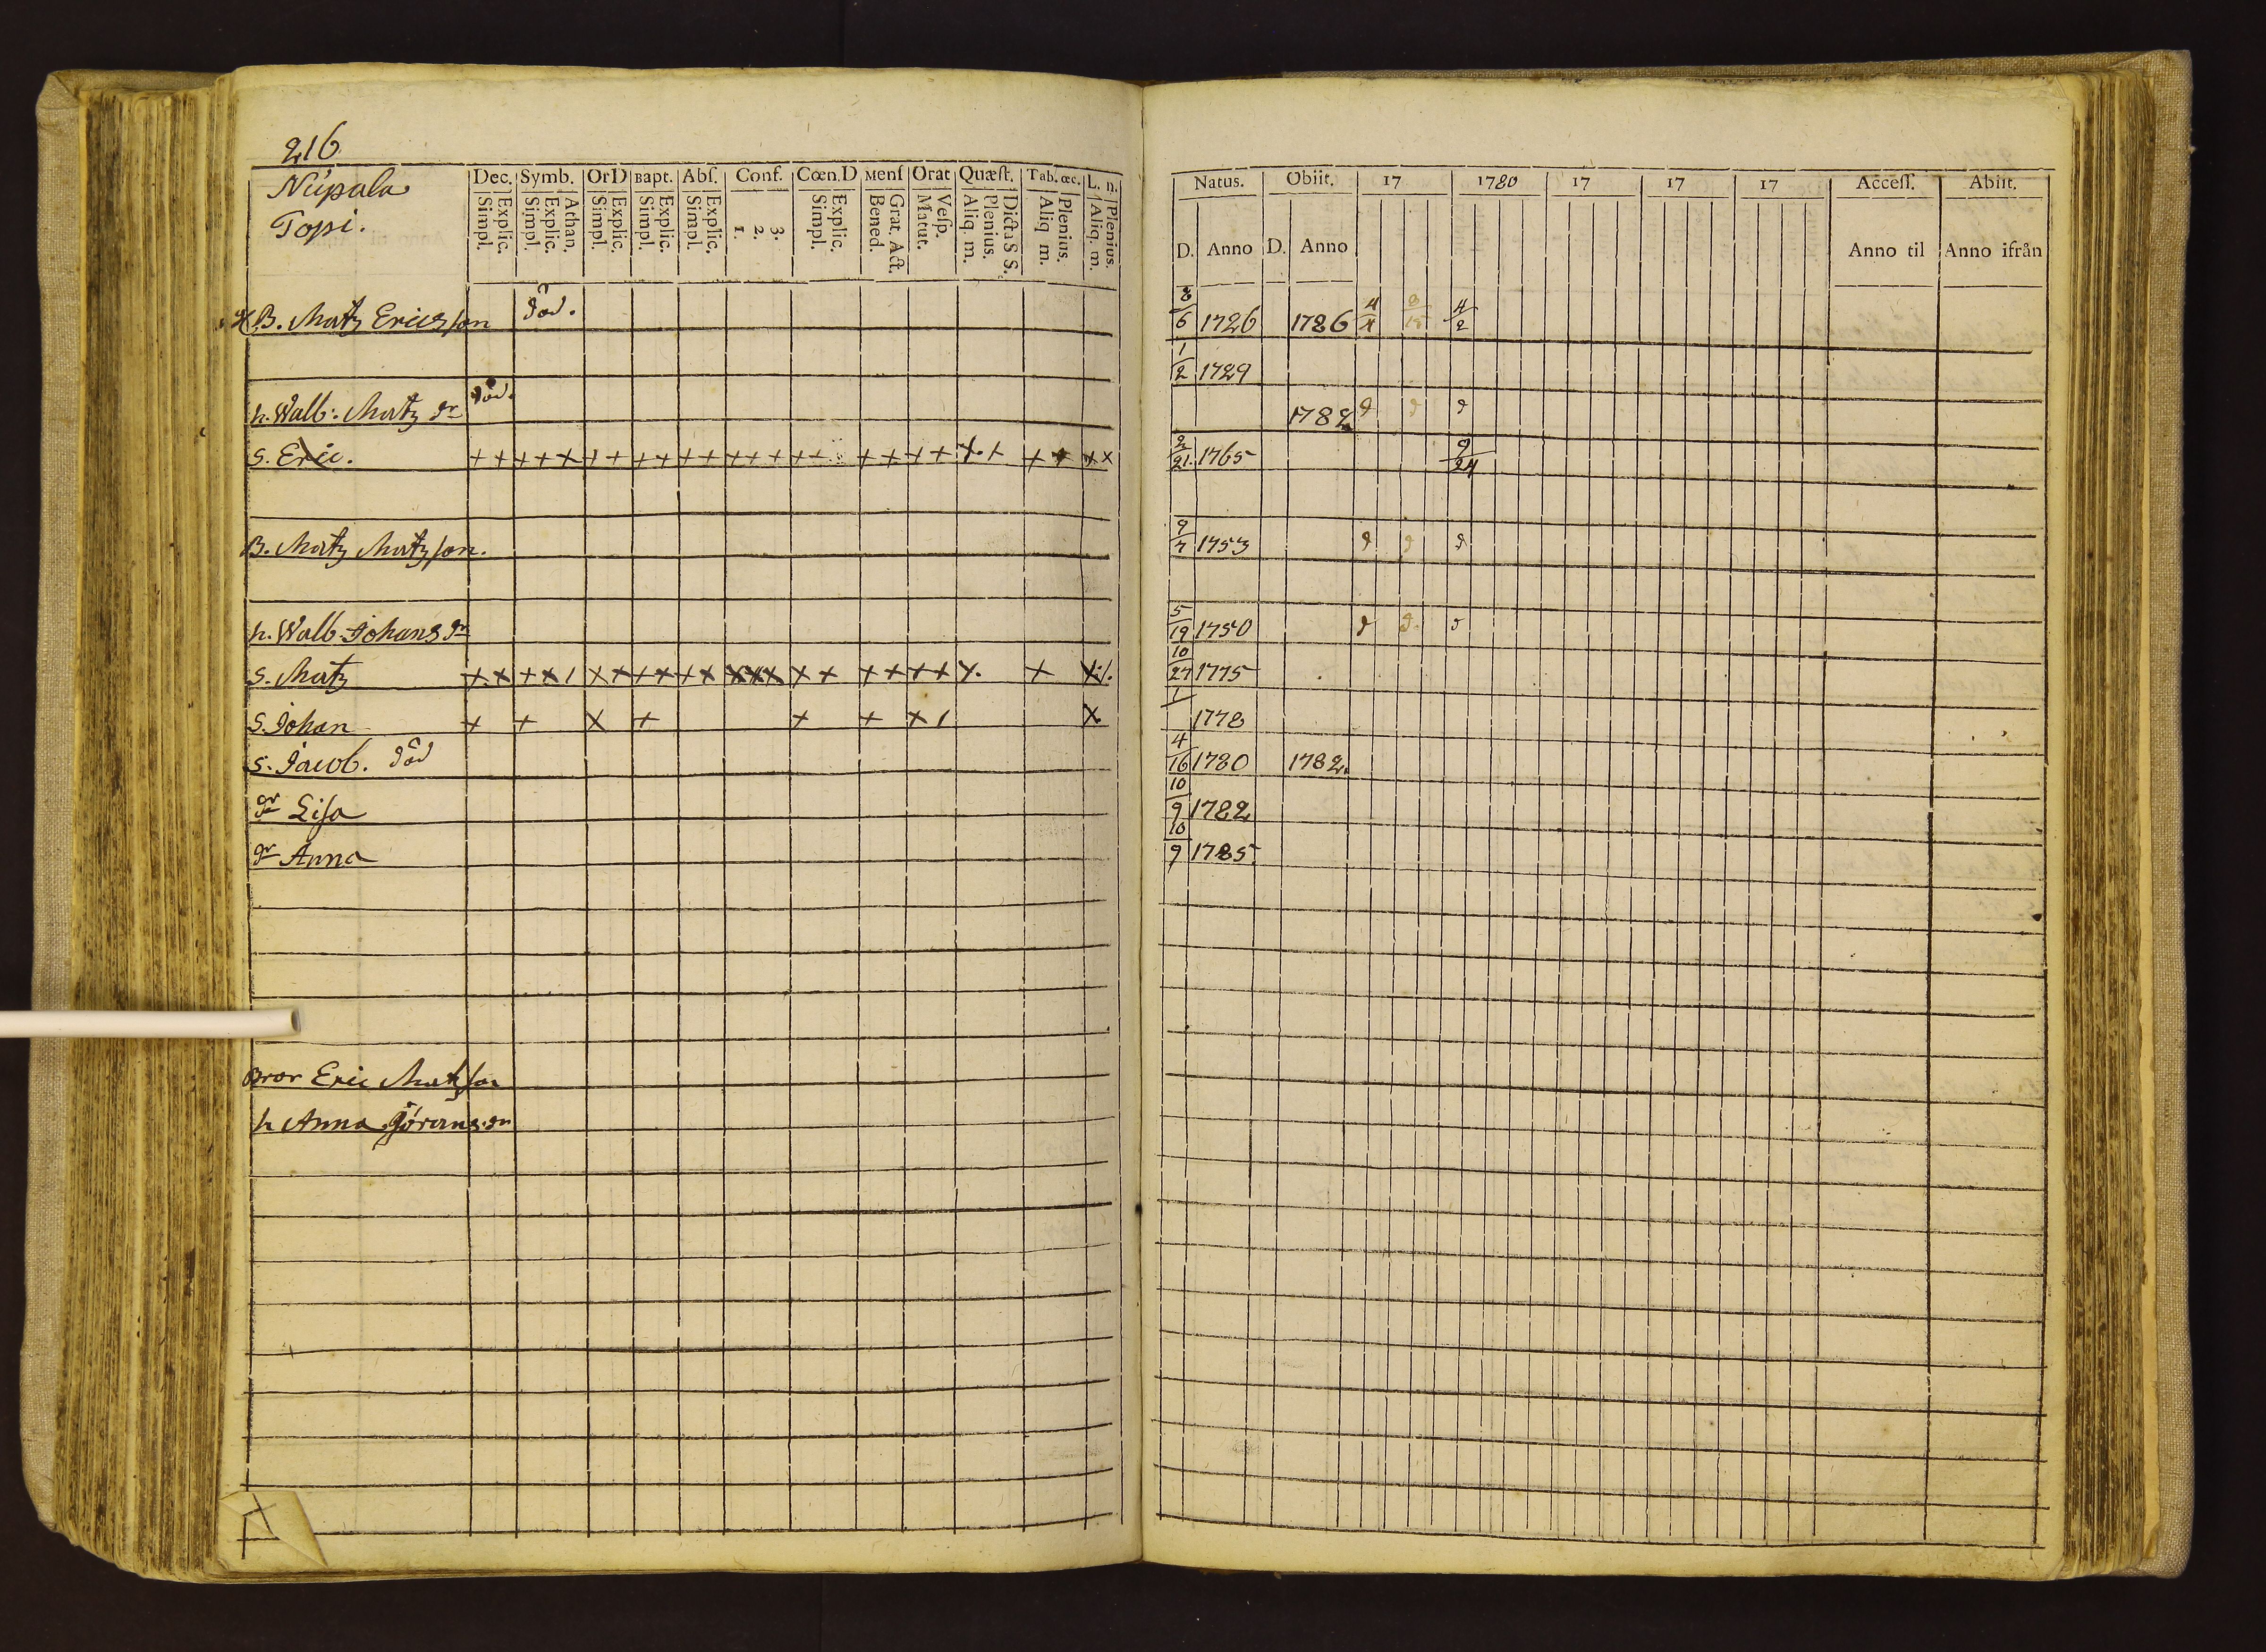 216.
Nupala
Topi.
Dec. Symb. OrD Bapt. Abſ. Conf. Cœn.D Menſ Orat Quæſt. Tab. œc. L. n.
Simpl. Explic. Simpl. Explic. Athan. Simpl. Explic. Simpl. Explic. Simpl. Explic. 1. 2. 3. Simpl. Explic. Bened. Grat. Act. Matut. Veſp. Aliq. m. Plenius. Dicta S S. Aliq m. Plenius. Aliq. m. Plenius.
B. Matz Ericsson död.
h. Walb: Matz dr död.
S. Eric. + + + + + + + + + + + + + + + + + + + + + + + + + x
B. Matz Matzson.
h. Walb. Johans dr
S. Matz + x + x / x + + x + x x x x x + + + + + x. + x /.
S. Johan + + x + + + x / x
S. Jacob. död
dr Lisa
dr Anna
Bror Eric Matzson
h Anna Görans dr
Natus. Obiit. 17 1780 17 17 17 Acceſſ. Abiit.
D. Anno D. Anno Anno til Anno ifrån
8/6 1726 1786 4/4 4/2
1/2 1729
1782 d d d
2/21 1765 9/24
9/7 1753 d d d
5/19 1750 d d d
10/27 1775
1/ 1778
4/16 1780 1782.
10/9 1782
10/9 1785.